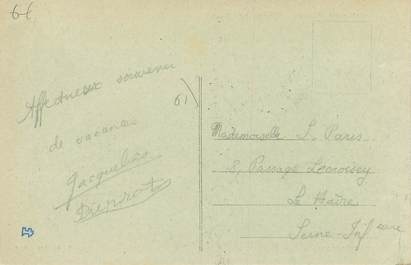 61
Affectueux souvenir
de vacances
Jacqueline
61
Mademoiselle S. Paris
8, Passage Lecroisey
Le Havre
Seine-Inf eure